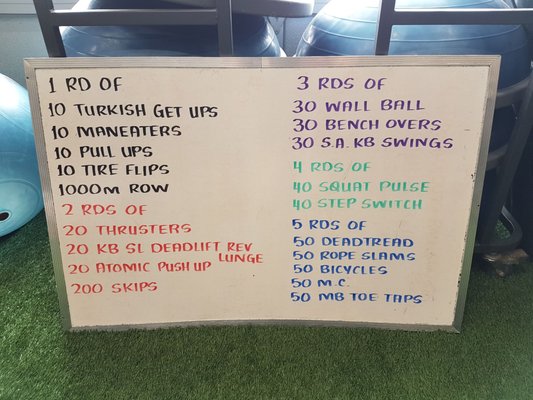 1 RD OF
10 TURKISH GET UPS
10 MANEATERS
10 PULL UPS
10 TIRE FLIPS
1000m ROW
2 RDS OF
20 THRUSTERS
20 KB SL DEADLIFT REV
LUNGE
20 ATOMIC PUSH UP
200 SKIPS
3 RDS OF
30 WALL BALL
30 BENCH OVERS
30 S.A. KB SWINGS
4 RDS OF
40 SQUAT PULSE
40 STEP SWITCH
5 RDS OF
50 DEADTREAD
50 ROPE SLAMS
50 BICYCLES
50 M.C.
50 MB TOE TAPS